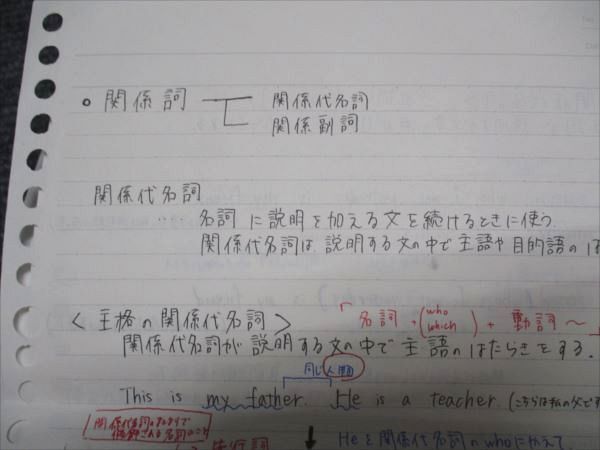 ○ 関係詞 関係代名詞
関係副詞
関係代名詞
… 名詞に説明を加える文を続けるときに使う.
関係代名詞は、説明する文の中で主語や目的語のは
「名詞 + (who which) + 動詞〜
<主格の関係代名詞>
関係代名詞が説明する文の中で主語のはたらきをする.
同じ人物
This is my father. He is a teacher. (こちらは私の父です
関係代名詞
名詞のこと
先行詞
Heを関係代名詞のwhoにかえて